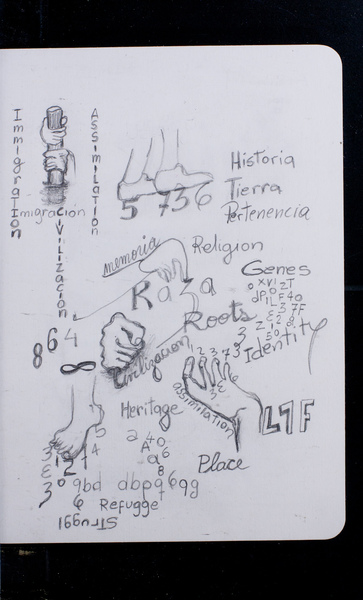 Immigration
Assimilation
Imigracion
Civilizacion
5 7536
Historia
Tierra
Pertenencia
memoria
Religion
Raza
Genes
Roots
Identity
864
∞
Civilizacion
1 2 3 7 3
assimilation
L7F
Heritage
Place
9bd dbpq69g
Refugge
Struggl